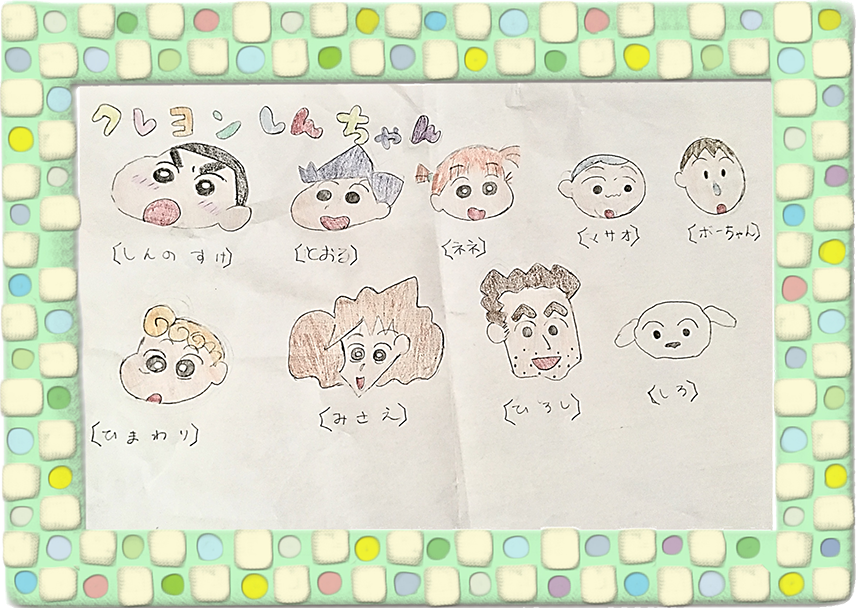 クレヨンしんちゃん
(しんのすけ) (とおる) (ネネ) (マサオ) (ボーちゃん)
(ひまわり) (みさえ) (ひろし) (しろ)